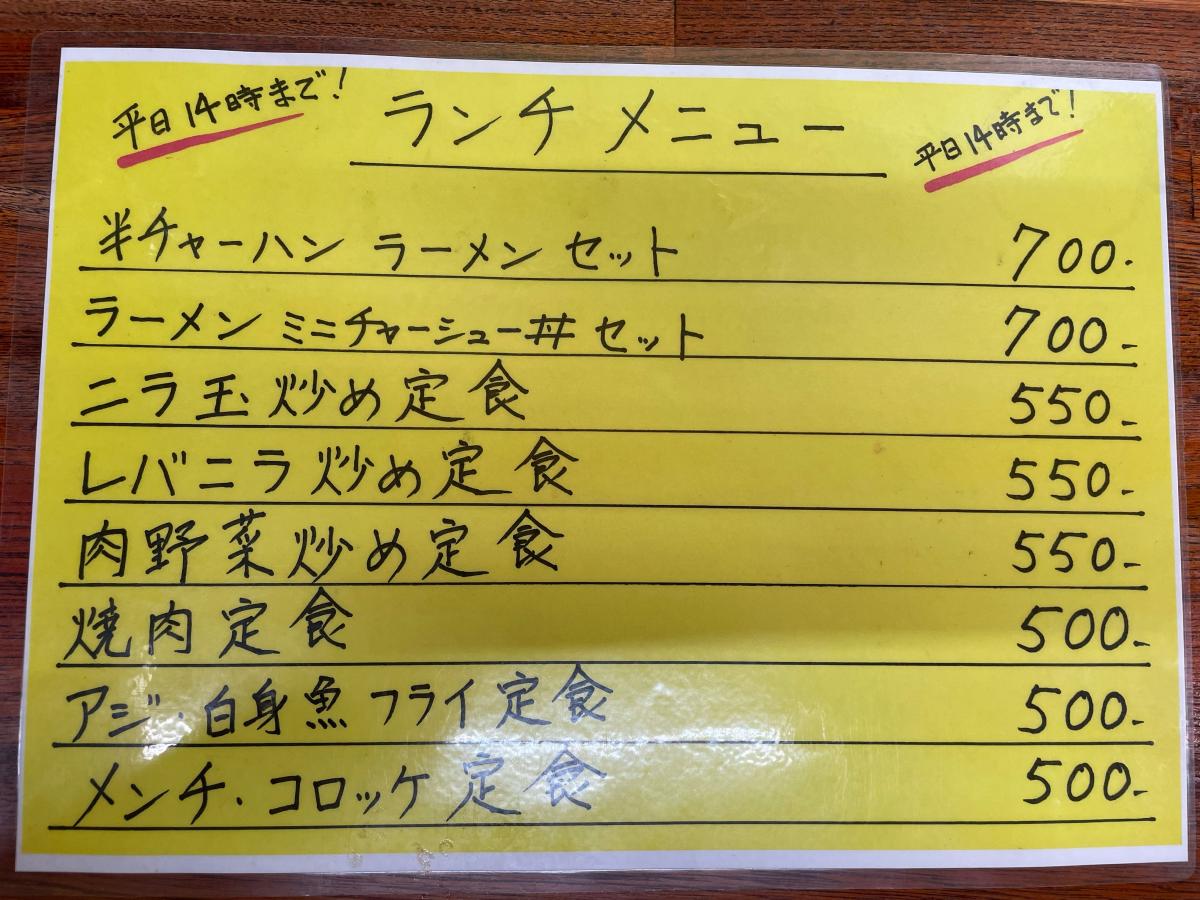 平日14時まで!
ランチメニュー
平日14時まで!
半チャーハン ラーメン セット 700.-
ラーメン ミニチャーシュー丼 セット 700.-
ニラ玉炒め定食 550.-
レバニラ炒め定食 550.-
肉野菜炒め定食 550.-
焼肉定食 500.-
アジ・白身魚フライ定食 500.-
メンチ・コロッケ定食 500.-